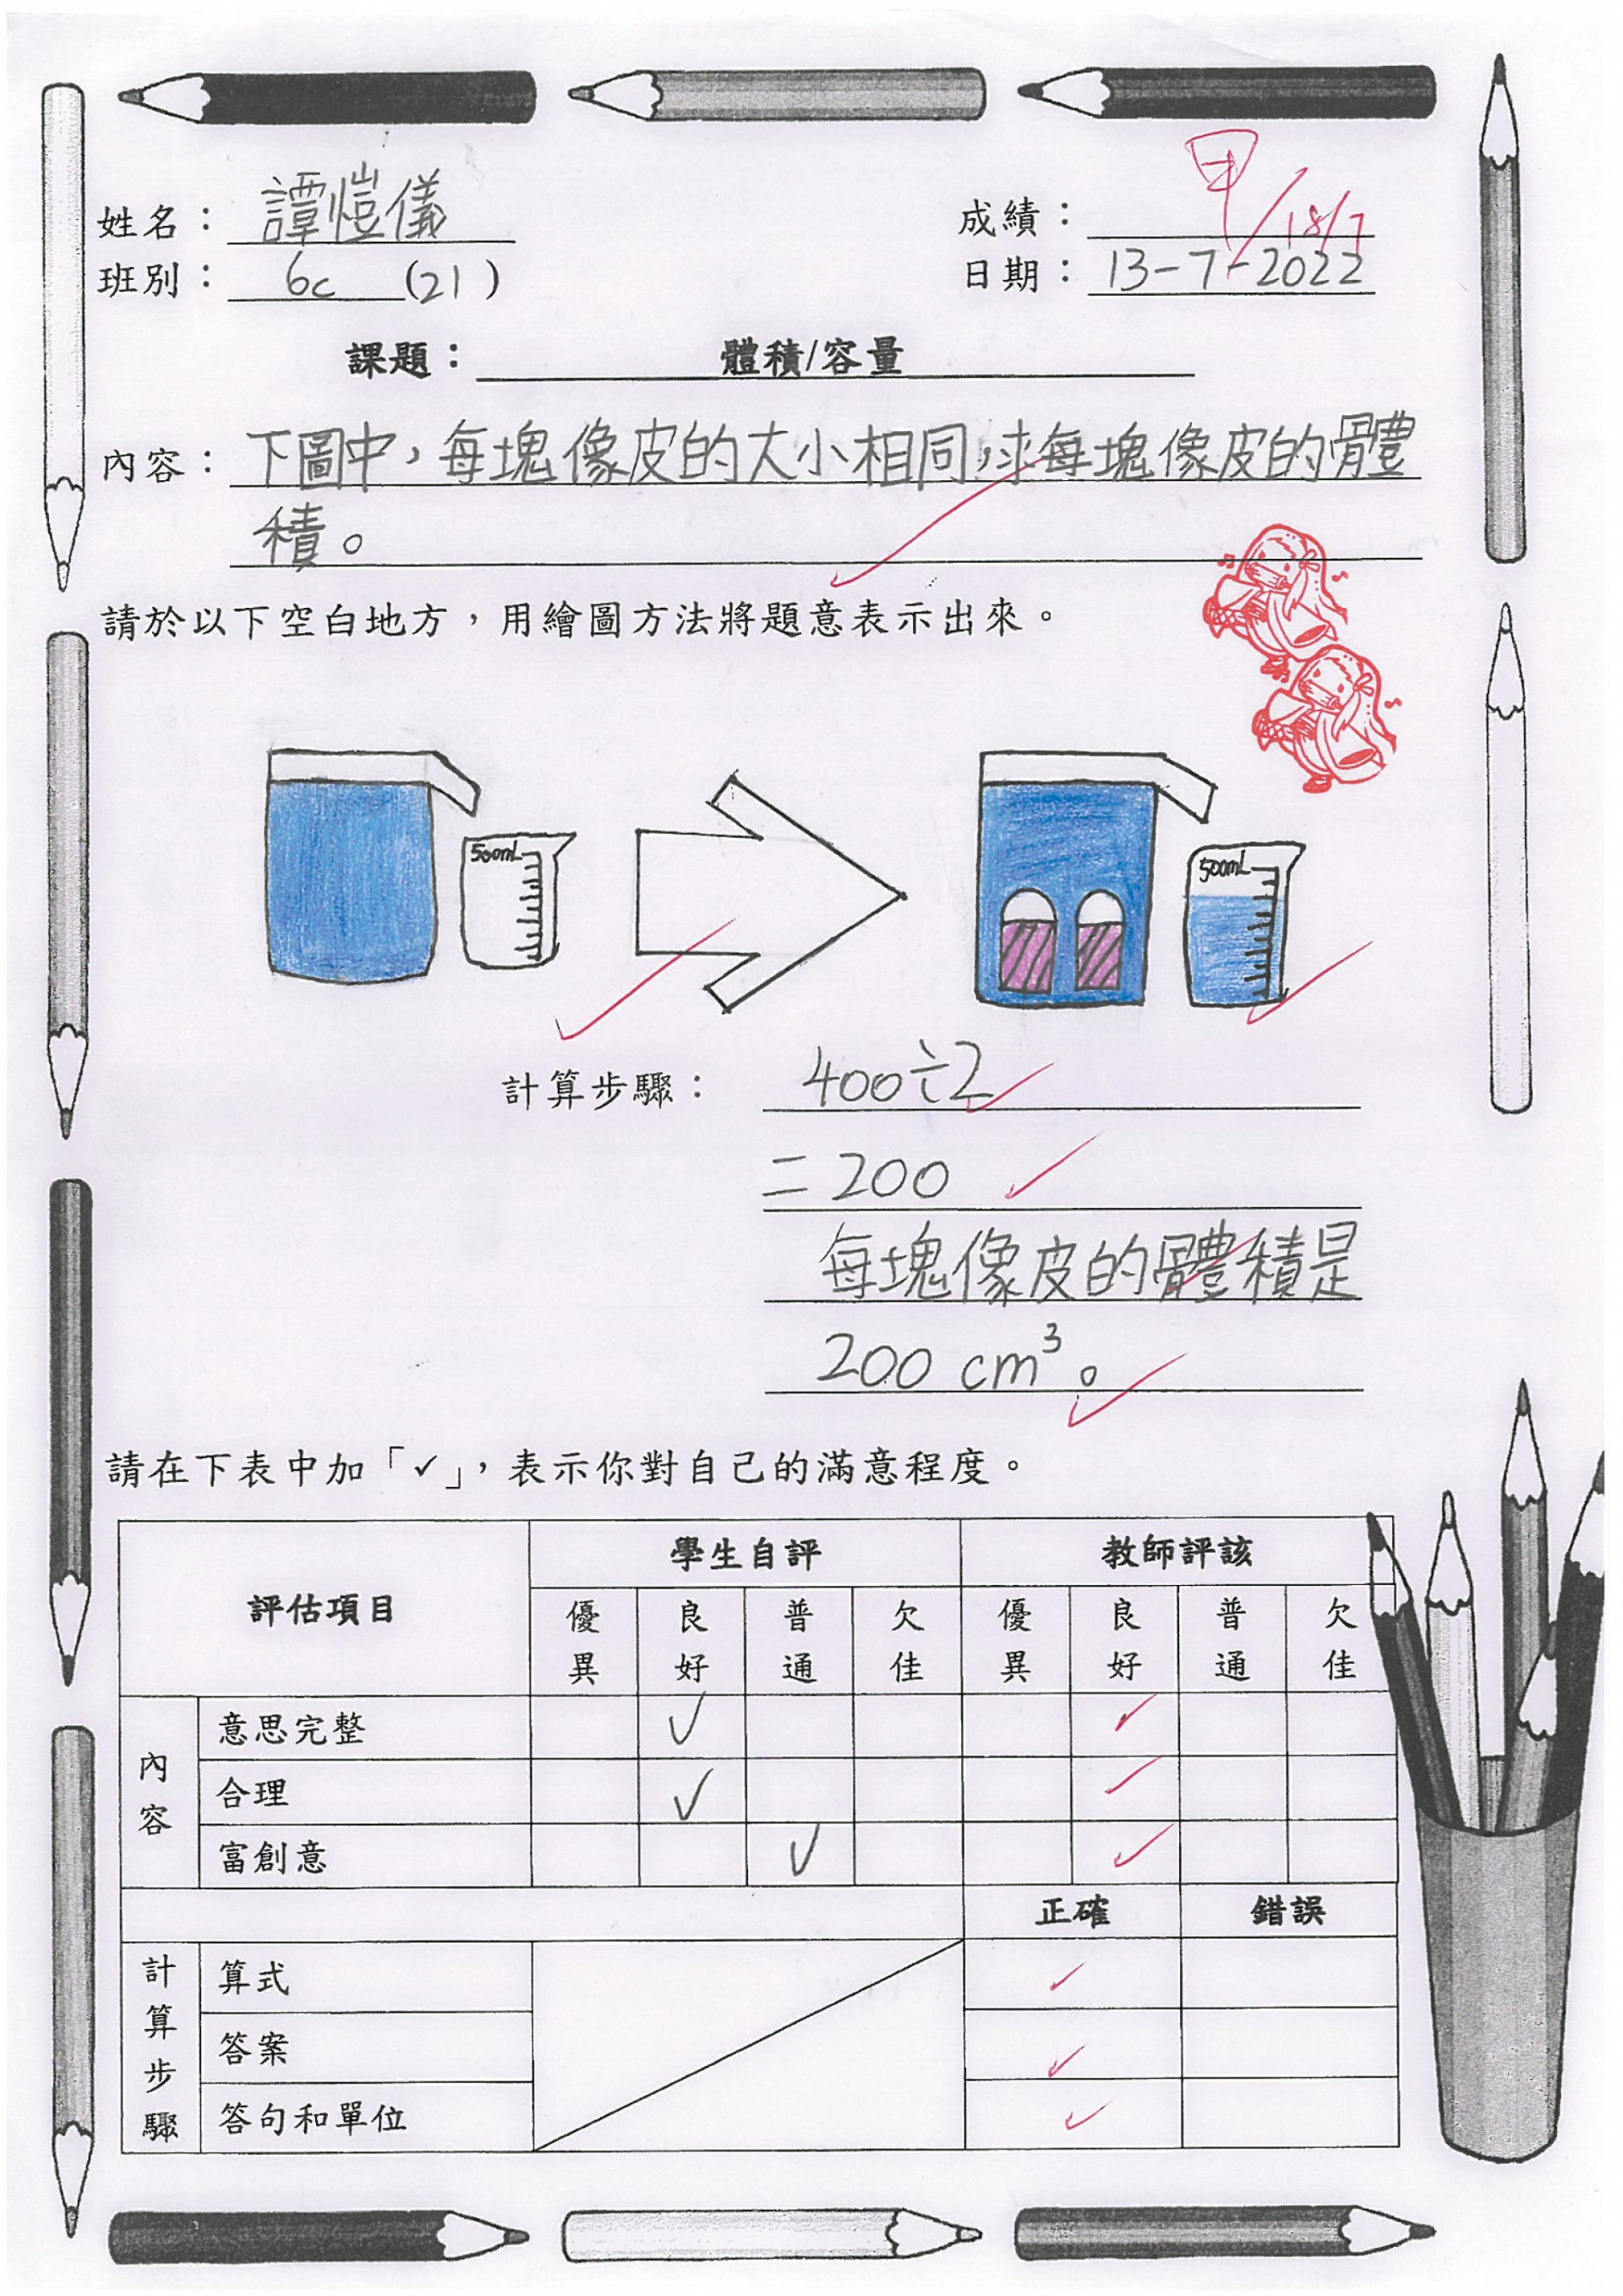 姓名： 譚愷儀 成績： 甲/18/7
班別： 6c (21) 日期： 13-7-2022
課題： 體積/容量
內容： 下圖中，每塊像皮的大小相同，求每塊像皮的體
積。
請於以下空白地方，用繪圖方法將題意表示出來。
500mL 500mL
計算步驟： 400÷2
=200
每塊像皮的體積是
200 cm³。
請在下表中加「✓」，表示你對自己的滿意程度。
評估項目 學生自評 教師評該
優異 良好 普通 欠佳 優異 良好 普通 欠佳
內容 意思完整 ✓ ✓
合理 ✓ ✓
富創意 ✓ ✓
正確 錯誤
計算步驟 算式 ✓
答案 ✓
答句和單位 ✓